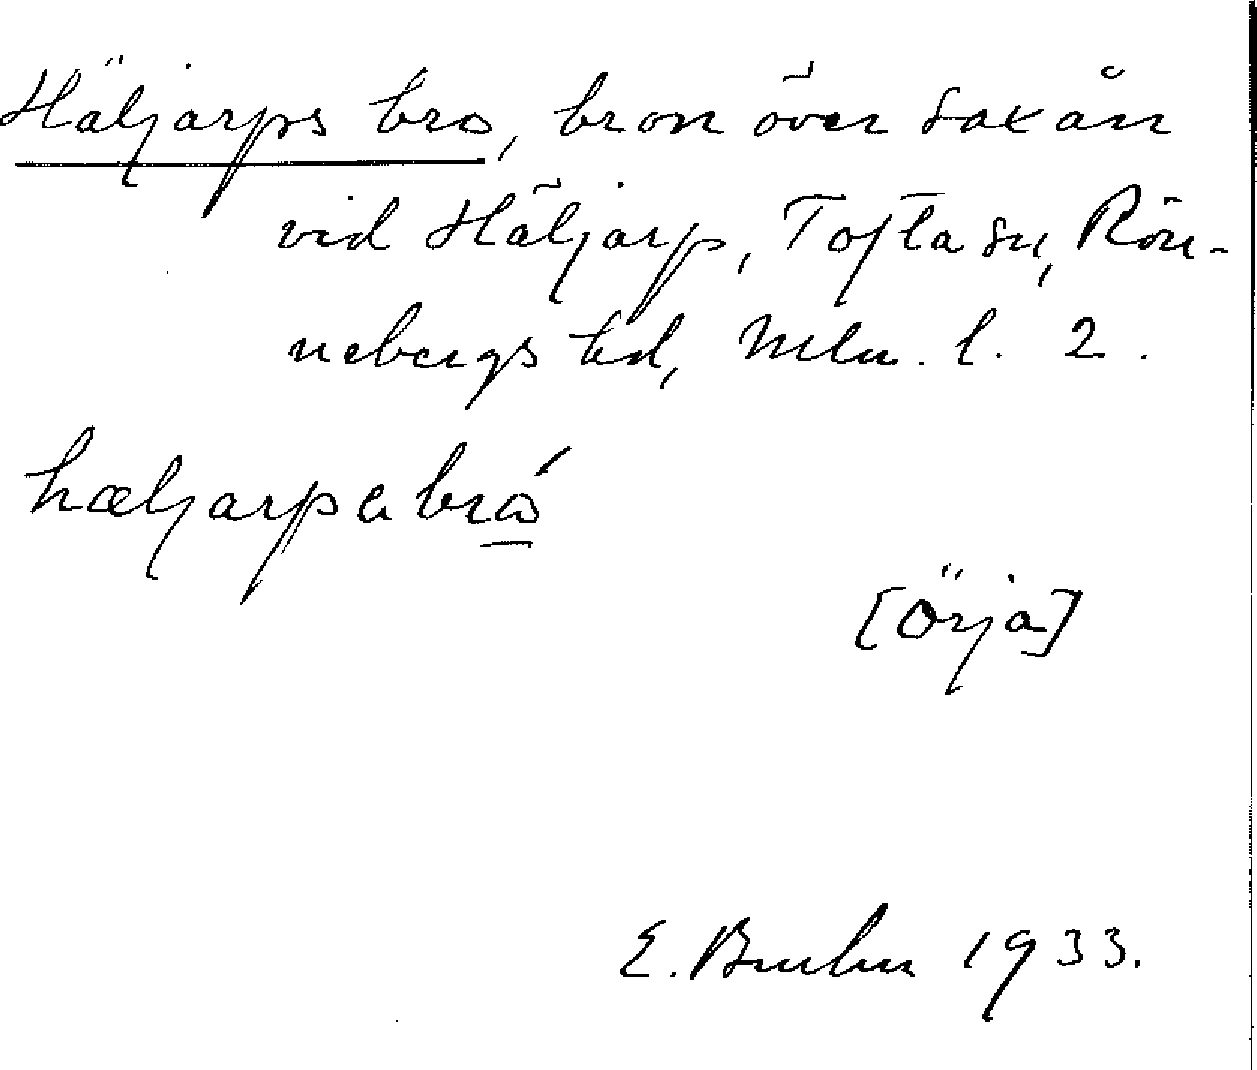 Häljarps bro, bron över Saxån
vid Häljarp, Tofta sn, Rön-
nebergs hd, Mlm. l. 2.
hæljarpabró
[Örja]
E. Bruhn 1933.